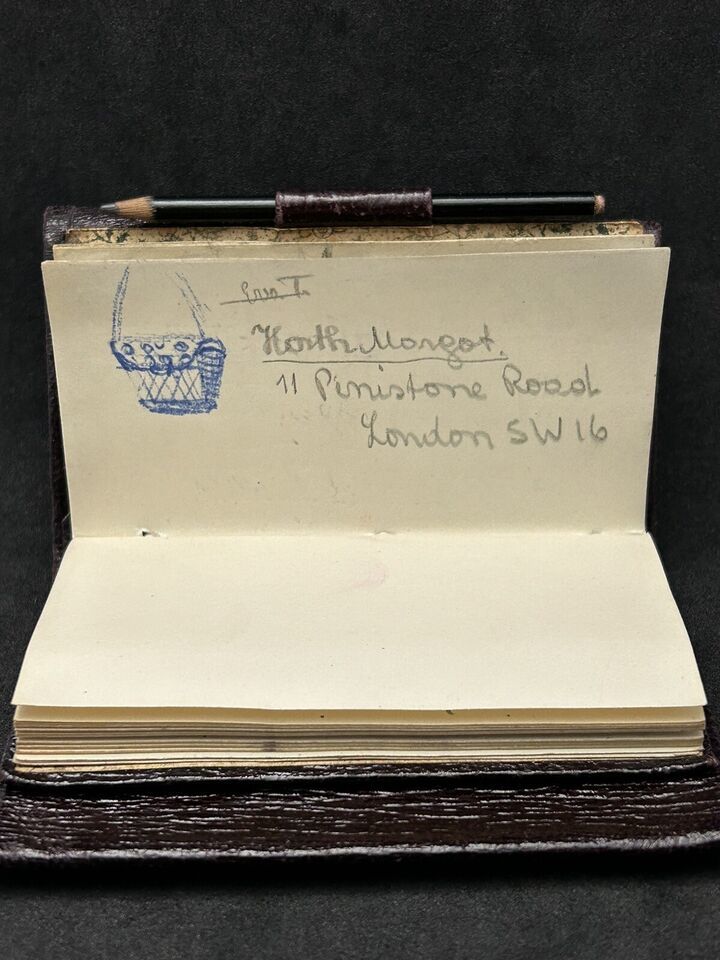 Horth Margot.
11 Pinistone Road
London SW16